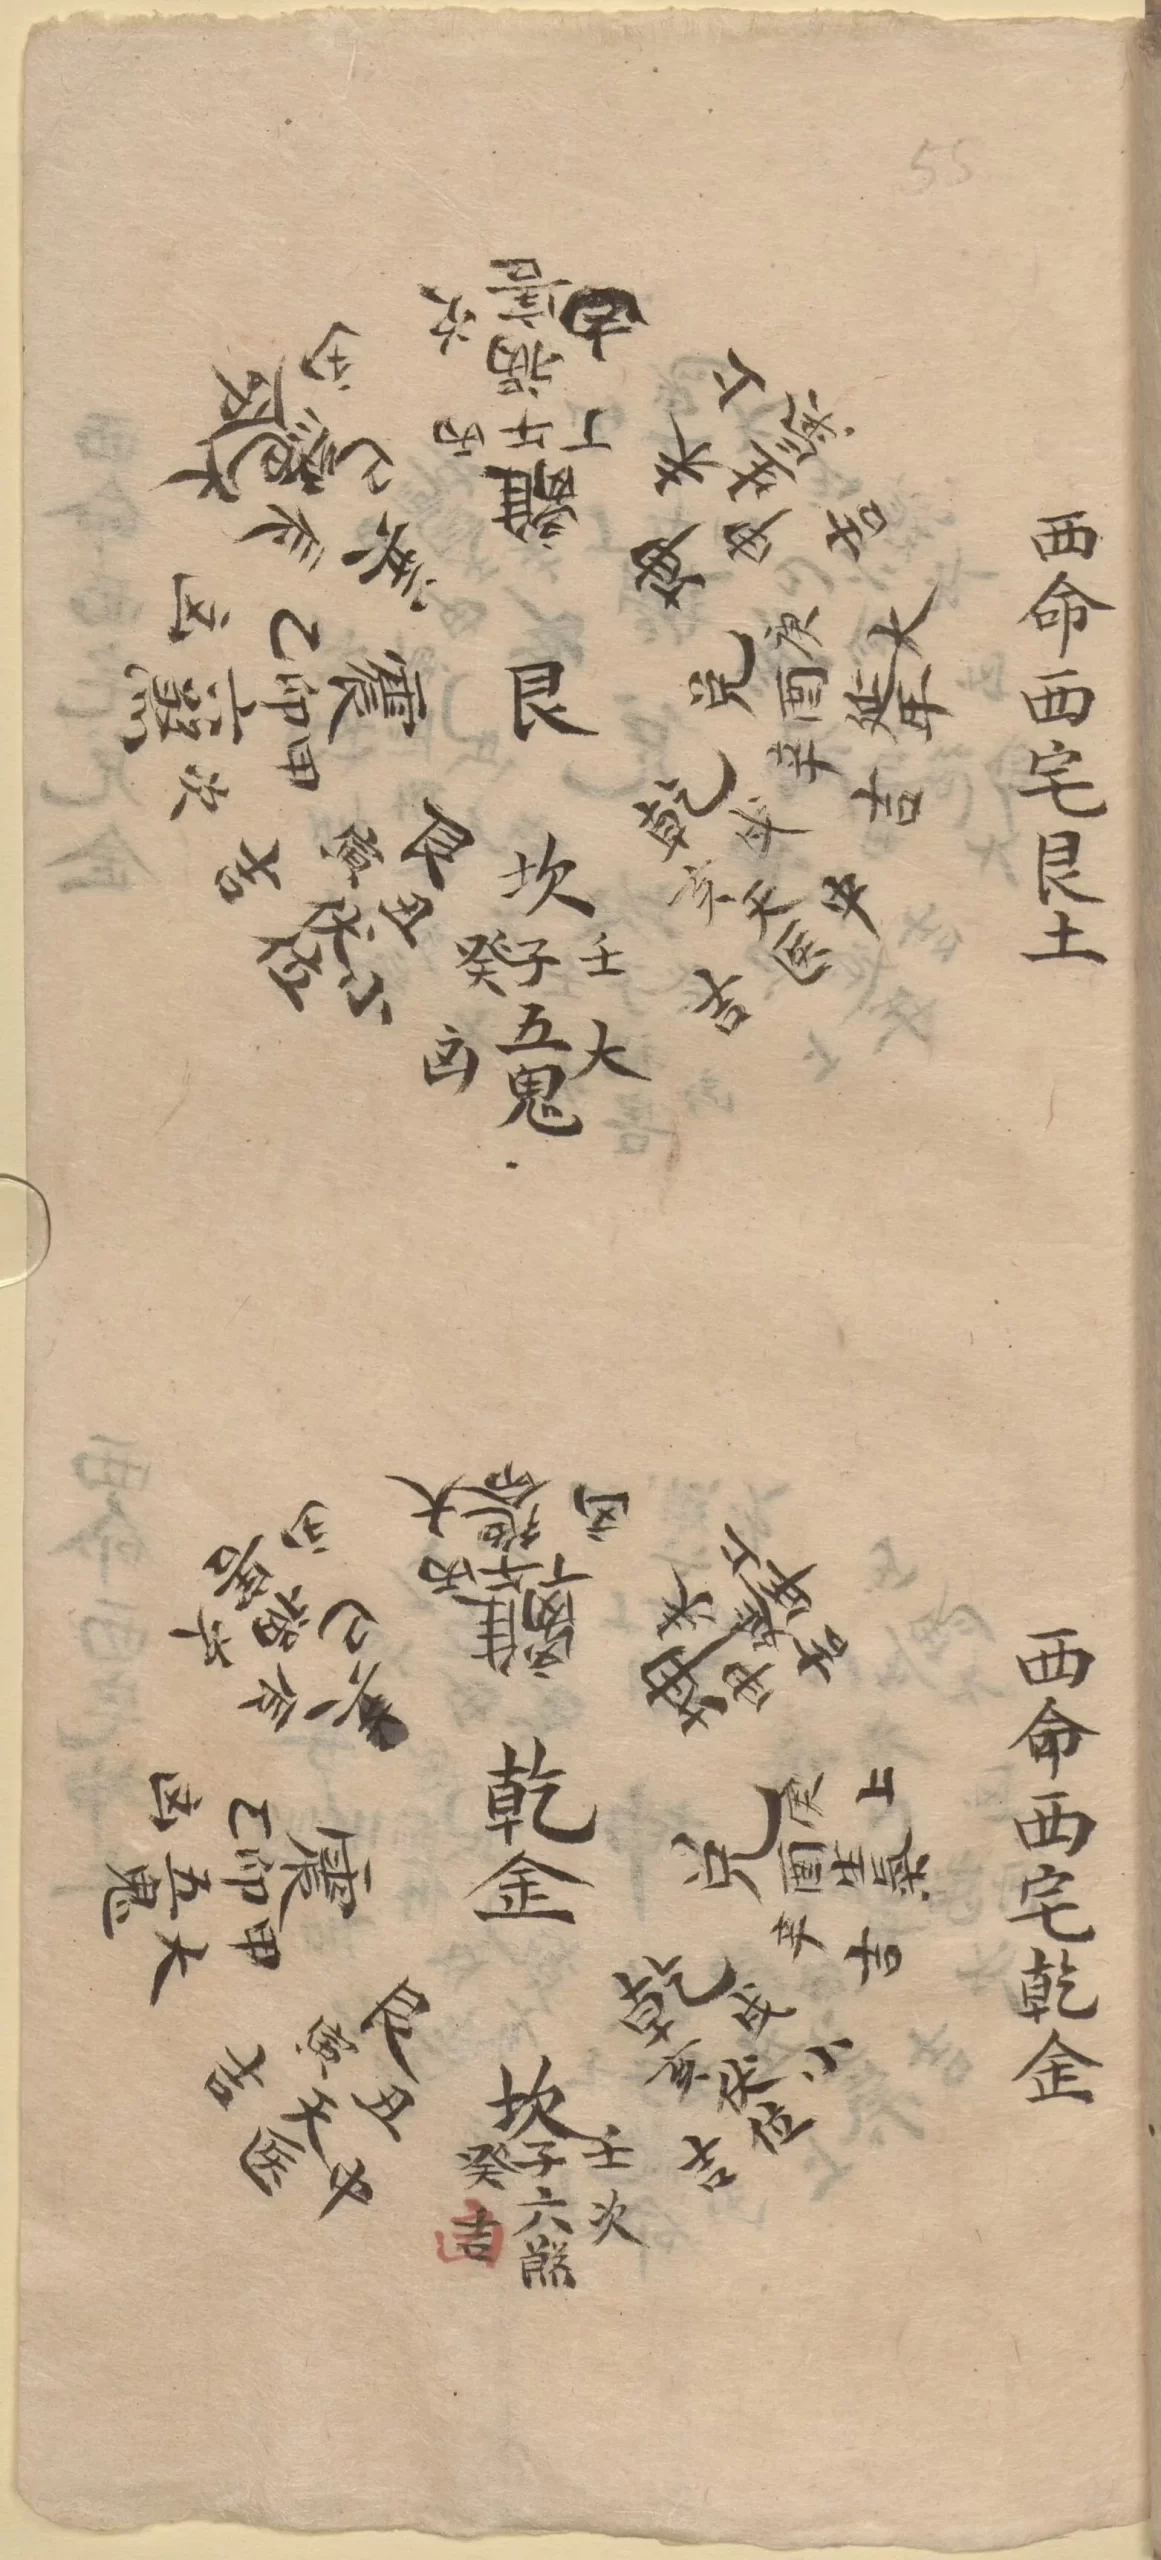 55
西命西宅艮土
艮
離
丙午丁
禍害
次
凶
坤
未申
生氣
上
吉
兌
庚酉辛
延年
大
吉
乾
戌亥
天医
中
吉
坎
壬子癸
五鬼
大
凶
艮
丑寅
伏位
小
吉
震
甲卯乙
六煞
次
凶
巽
辰巳
絕命
大
凶
西命西宅乾金
乾金
離
丙午丁
絕命
大
凶
坤
未申
延年
上
吉
兌
庚酉辛
生氣
上
吉
乾
戌亥
伏位
小
吉
坎
壬子癸
六煞
次
吉
艮
丑寅
天医
中
吉
震
甲卯乙
五鬼
大
凶
巽
辰巳
禍害
凶